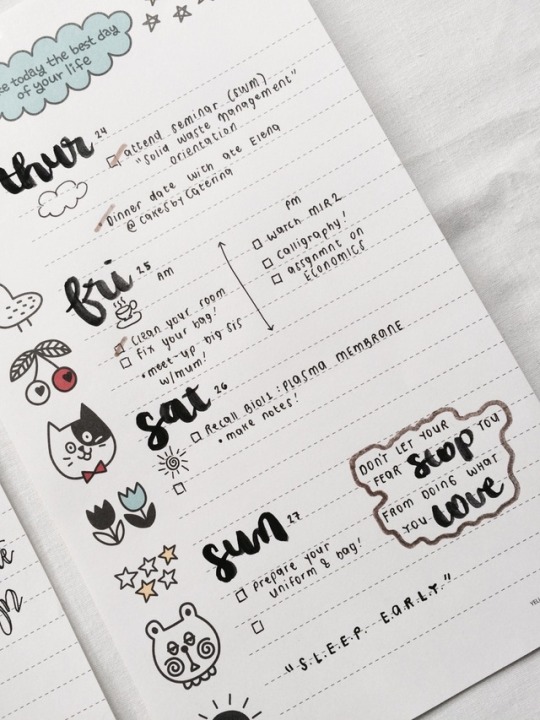 ke today the best day
of your life
thur 24
attend seminar (SWM)
"Solid Waste Management"
Orientation
Dinner date with ate Elena
@ Cakes by Caterina
fri 25
Am
Clean your room
Fix your bag!
meet-up big sis
w/mum!
pm
watch MIR2
calligraphy!
assgnmnt on
ECONOMICS
sat 26
Recall Bio11: PLASMA MEMBRANE
make notes!
DON'T LET YOUR
FEAR stop YOU
FROM DOING WHAT
YOU love
sun 27
prepare your
uniform & bag!
"S.L.E.E.P. E.A.R.L.Y."